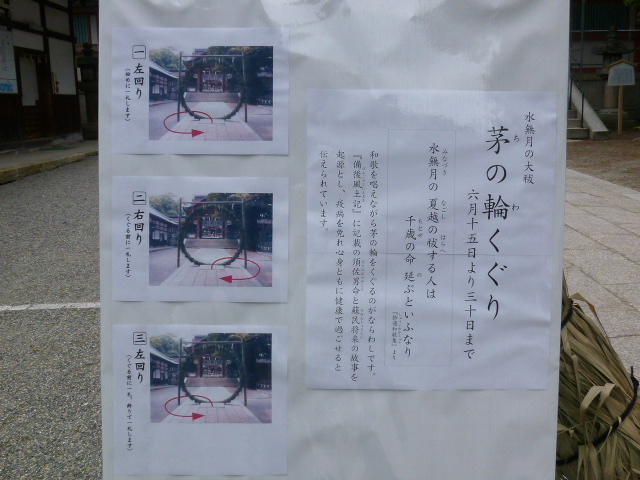 水無月の大祓
茅の輪くぐり
ちのわ
六月十五日より三十日まで
水無月の夏越の祓する人は
みなづき なごし はらへ
千歳の命 延ぶといふなり
ちとせ の
『拾遺和歌集』より
和歌を唱えながら茅の輪をくぐるのがならわしです。
『備後風土記』に記載の須佐男命と蘇民将来の故事を
起源とし、疫病を免れ心身ともに健康で過ごせると
伝えられています。
一 左回り
(始めに一礼します)
二 右回り
(くぐる前に一礼します)
三 左回り
(くぐる前に一礼、終りて一礼します)